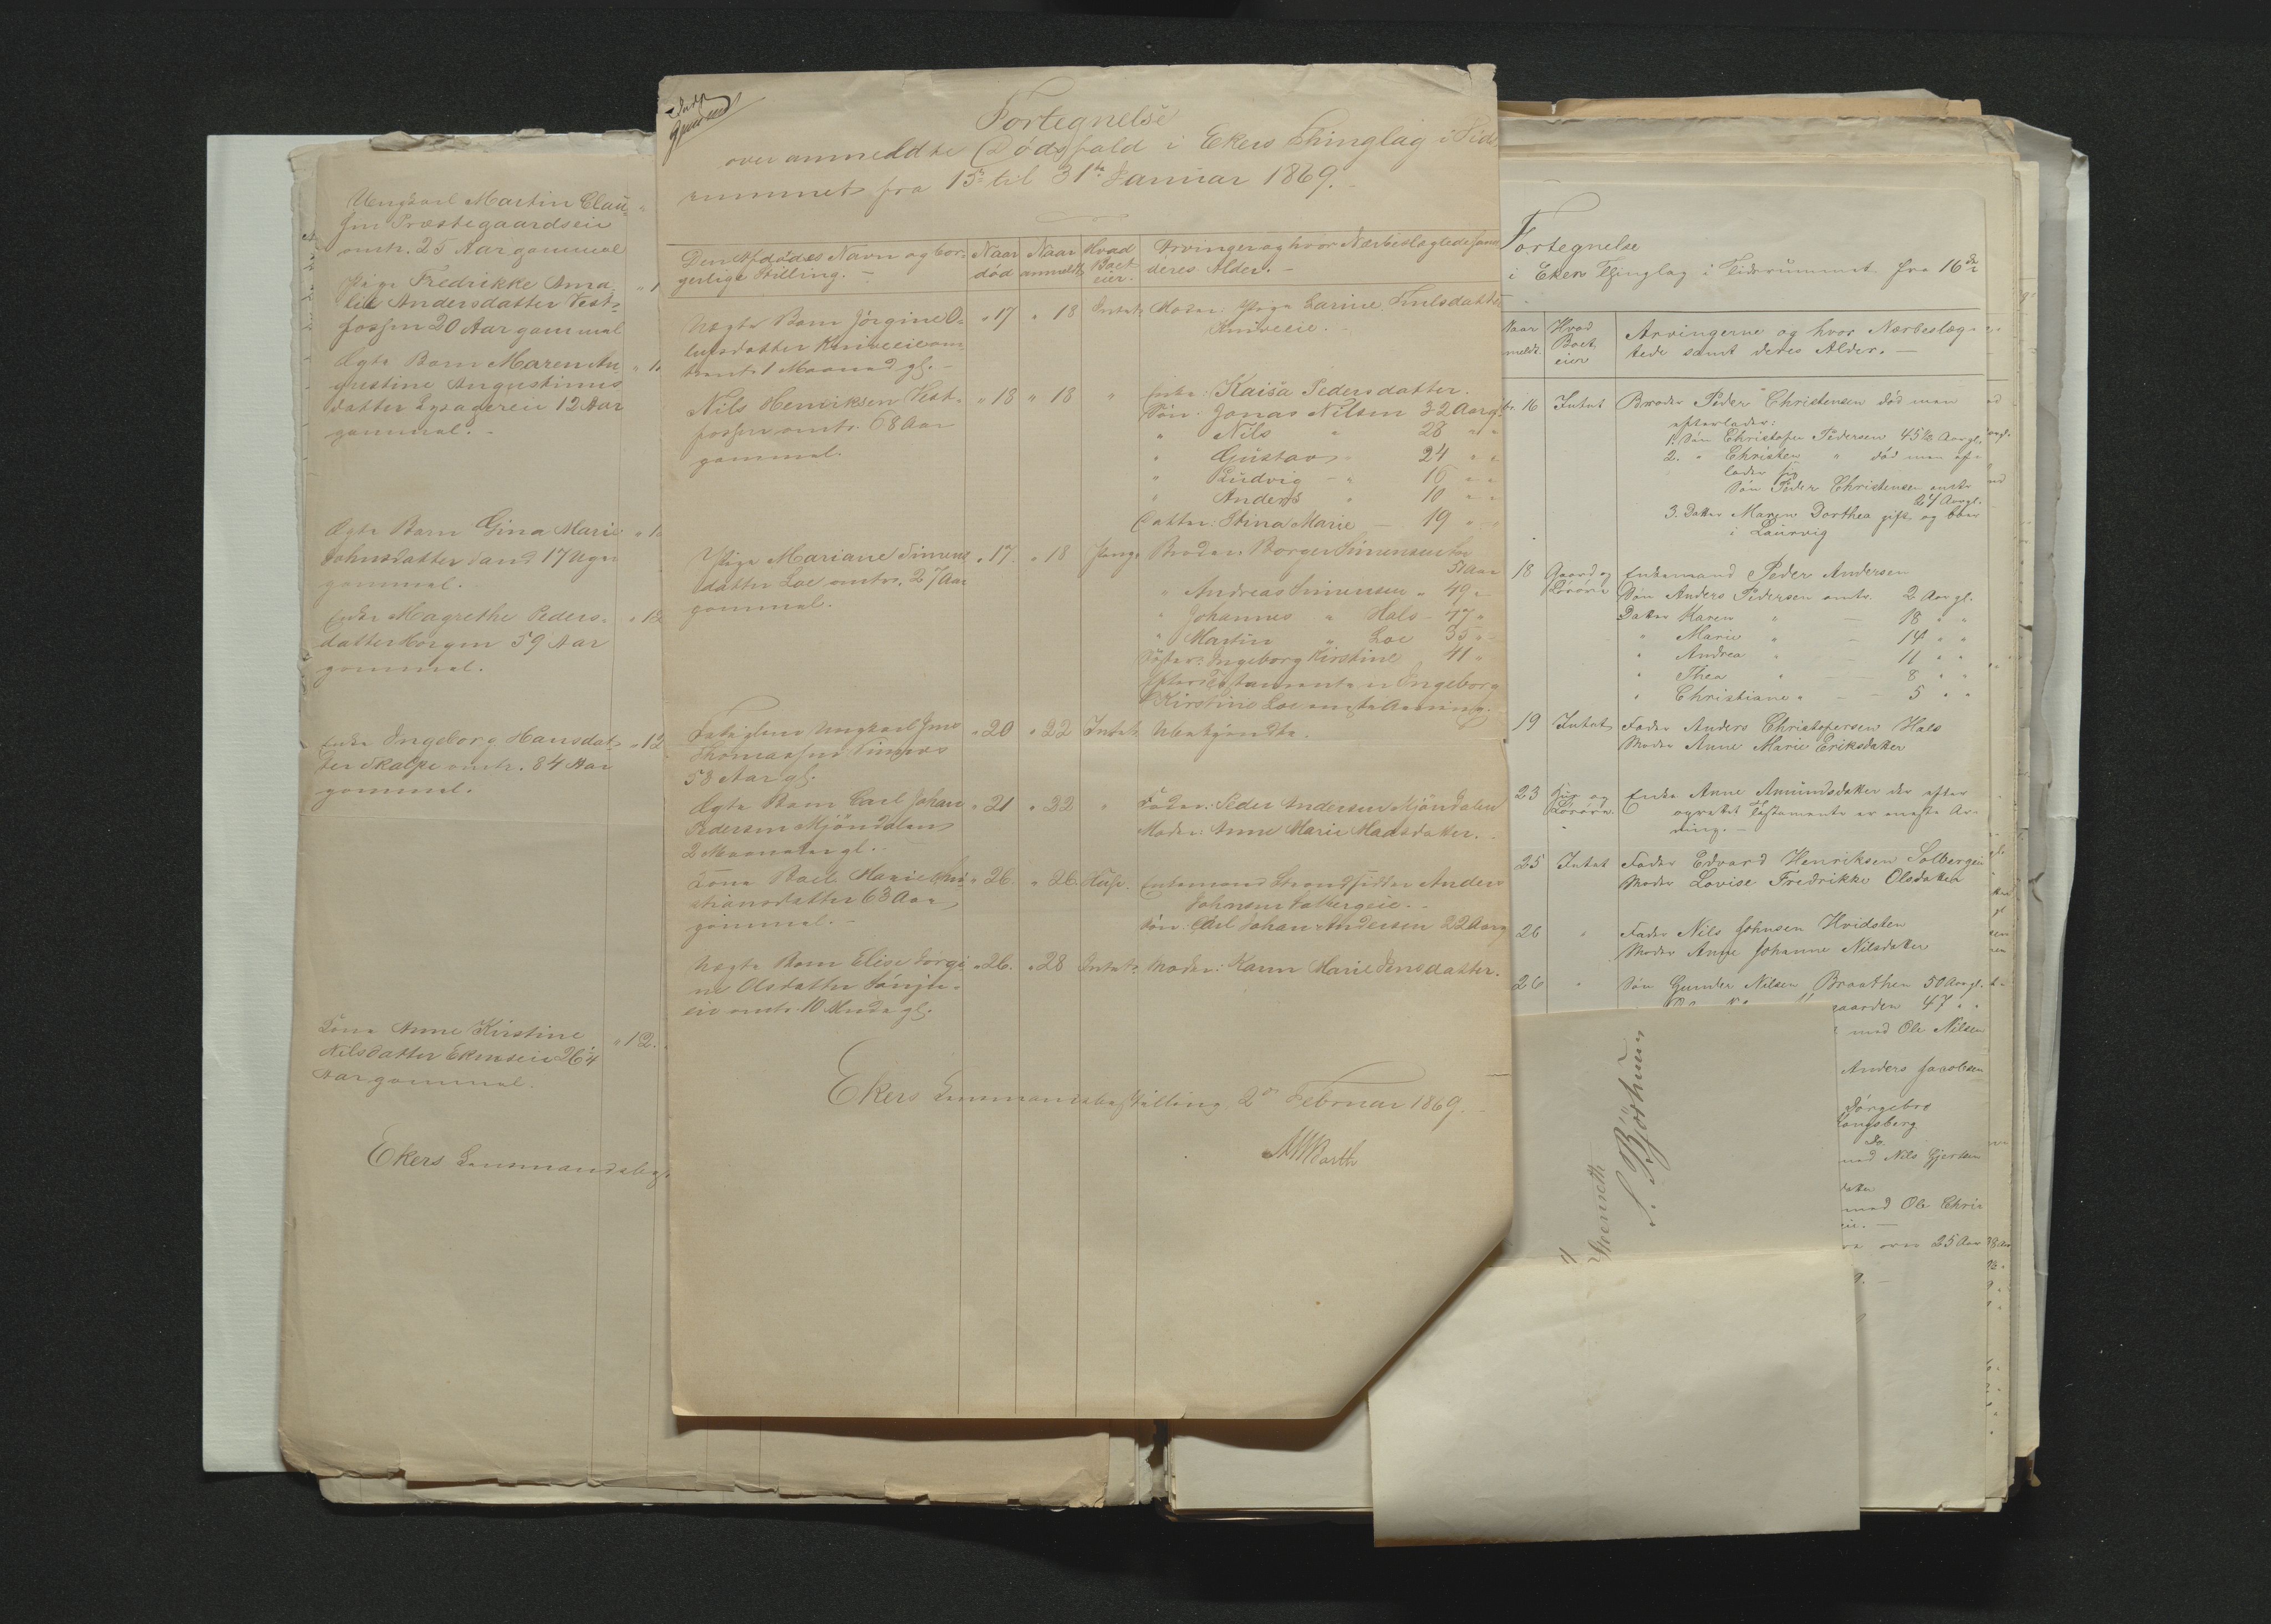 Ungkarl Martin Clau-
sen Præstegaardseie
omtr. 25 Aar gammel
Pige Fredrikke Ama-
lie Andersdatter Vest-
fossen 20 Aar gammel
Ægte Barn Maren Au-
gustine Augustinus
datter 12 Aar
gammel. -
Ægte Barn Gina Marie
Johnsdatter Sand 17 Uger
gammel.
Enke Magrethe Peders-
datter Horgen 59 Aar
gammel.
Enke Ingeborg Hansdat- " 12
ter Skalpe omtr. 84 Aar
gammel.
Kone Anne Kirstine " 12.
Nilsdatter Ekerseie 26 1/4
Aar gammel.
Ekers Lensmandsbest
Fortegnelse
over anmeldte Dødsfald i Ekers Thinglag i Tids
rummet fra 15de til 31te Januar 1869.
Den Afdødes Navn og bor-
gerlige Stilling. -
Naar
død
Naar
anmeldt
Hvad
Boet
eier.
Arvinger og hvor Nærbeslægtede samt
deres Alder. -
Uægte Barn Jørgine O- " 17 " 18 Intet Moder: Pige Larine Truls datter
lusdatter om-
trent 1 Maaned gl. -
Nils Henriksen Vest- " 18 " 18 " Enke: Kaisa Pedersdatter.
fossen omtr. 68 Aar
gammel.
Søn: Jonas Nilsen 32 Aar g.
" Nils " 28 " "
" Gustav " 24 " "
" Ludvig - " 16 " "
" Anders " 10 " "
Datter: Stina Marie - 19 " "
Pige Mariane Simens " 17. " 18 Penge Broder: Borger Simensen Loe
51 Aar
datter Loe omtr. 27 Aar
gammel.
" Andreas Simensen " 49 "
" Johannes " Hals - 47 "
" Martin " Loe 35 "
Søster: Ingeborg Kirstine 41 "
Efter Testamente er Engeborg
Kirstine Loe eneste Arving.
Fattiglem Ungkarl Jens " 20 " 22 Intet Ubekjendte.
Thomassen
58 Aar gl.
Ægte Barn Carl Johan " 21 " 22 " Fader: Peder Andersen Mjøndalen
Pedersen Mjøndalen
Moder: Anne Marie Madsdatter. -
2 Maaneder gl. -
Kone Marie Chri- " 26. " 26 Huse. Enkemand Strandsidder Anders
stiansdatter 63 Aar
Johnsen Solbergeie. -
gammel. -
Søn: Carl Johan Andersen 22 Aar g
Uægte Barn Elise Jorgi- " 26. " 28 Intet Moder: Karen Marie Jensdatter.
ne Olsdatter
eie omtr. 10 Maaneder gl.
Ekers Lensmandsbestilling 2den Februar 1869. -
Fortegnelse
i Eker Thinglag i Tidsrummet fra 16de
Naar
meldt
Hvad
Boet
eier
Arvingerne og hvor Nærbeslæg-
tede samt deres Alder. -
16 Intet Broder Peder Christensen død men
efterlader:
1. Søn Christofer Pedersen 45 1/2 Aar gl.
2. " Christen " død men efter
lader sig
Søn Peder Christensen omtr
24 Aar gl.
3. Datter Maren Dorthea gift og boer
i Laurvig
18 Gaard og Enkemand Peder Andersen
Løsøre Søn Anders Pedersen omtr. 2 Aar gl.
Datter Karen " - 18 " "
" Marie " - 14 " "
" Andrea " - 11 " "
" Thea " - 8 " "
" Christiane " - 5 " "
19 Intet Fader Anders Christofersen Hals
Moder Anne Marie Eriksdatter
23 Hus og Enke Anne Amundsdatter der efter
Løsøre. oprettet Testamente er eneste Ar-
ving. -
25 Intet Fader Edvard Henriksen Solbergeie
Moder Lovise Fredrikke Olsdatter
26 " Fader Nils Johnsen Hvidsten
Moder Anne Johanne Nilsdatter
26 " Søn Gunder Nilsen Braathen 50 Aar gl.
gaarden 47 " "
med Ole Nilsen
Anders Jacobsen
Kongsberg
do.
med Nils Gjertsen
datter
med Ole Chris
eie. -
25 Aar
S. Bjøthun